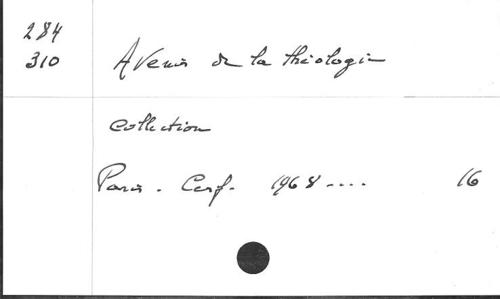 284
310 Avenir de la théologie
collection
Paris. Cerf. 1968.... 16